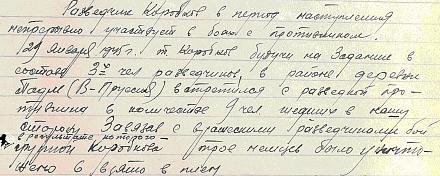 Разведчик Коробков в период наступления
непрерывно участвует в боях с противником.
29 января 1945 г. т. Коробков будучи на Задание в
составе 3х чел разведчиков, в районе деревни
(В-Пруссия) встретился с разведкой про-
тивника в количестве 9 чел. шедших в нашу
сторону Завязав с вражескими разведчиками бой
в результате которого
группой Коробкова трое немцев было уничто-
жено 6 взято в плен